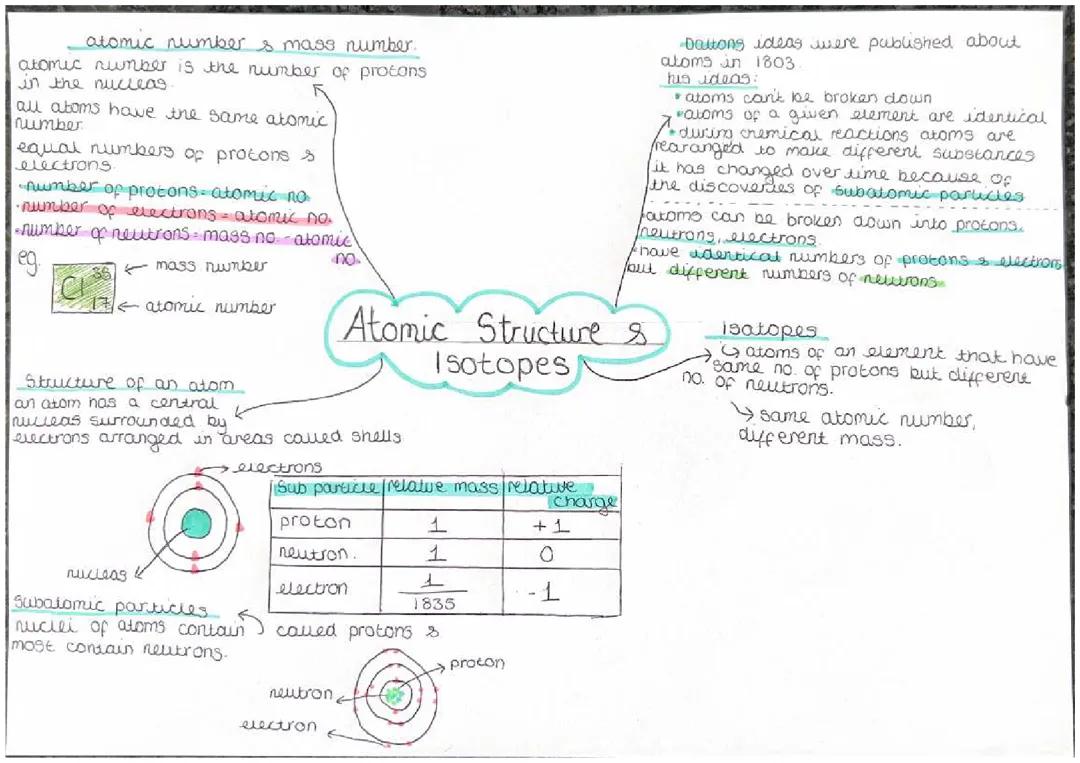 atomic number & mass number.
atomic number is the number of protons
in the nucleas.
all atoms have the same atomic
number.
equal numbers of protons &
electrons.
•number of protons = atomic no.
•number of electrons = atomic no.
•number of neutrons = mass no. - atomic
no.
eg.
Cl 35
17
mass number
atomic number
Daltons ideas were published about
atoms in 1803.
his ideas:
• atoms can't be broken down
• atoms of a given element are identical
• during chemical reactions atoms are
rearanged to make different substances
it has changed over time because of
the discoveries of subatomic particles
•atoms can be broken down into protons,
neutrons, electrons.
•have identical numbers of protons & electrons
but different numbers of neutrons
Atomic Structure &
Isotopes
Isotopes
↳ atoms of an element that have
same no. of protons but different
no. of neutrons.
↘ same atomic number,
different mass.
Structure of an atom
an atom has a central
nucleas surrounded by
electrons arranged in areas called shells
electrons
nucleas
Sub particle relative mass relative
charge
proton 1 +1
neutron. 1 0
electron 1/1835 -1
Subatomic particles
nuclei of atoms contain called protons &
most contain neutrons.
proton
neutron
electron